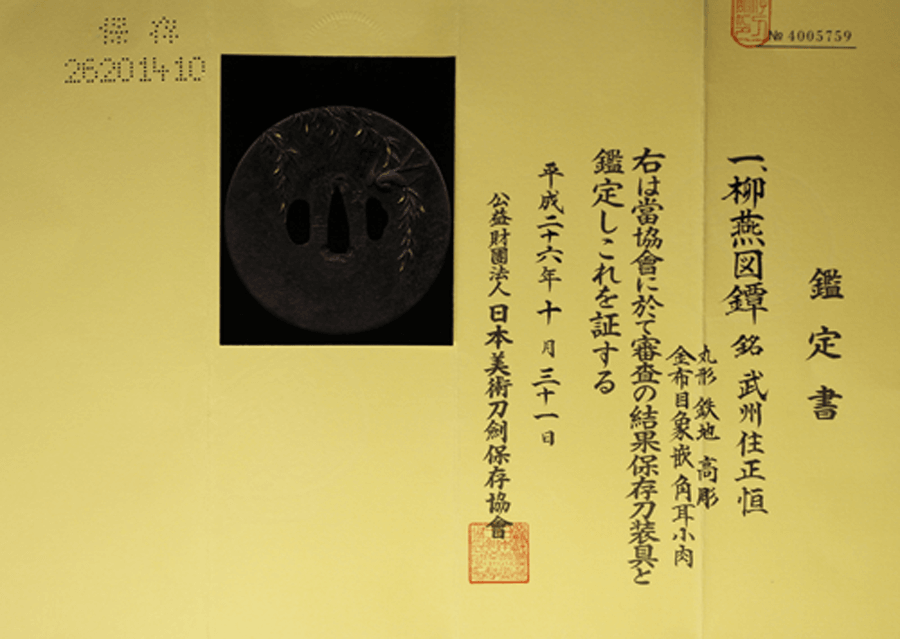 № 4005759
鑑定書
一、柳燕図鐔 銘 武州住正恒
丸形 鉄地 高彫
金布目象嵌 角耳小肉
右は當協會に於て審査の結果保存刀装具と
鑑定しこれを証する
平成二十六年 十月 三十一日
公益財團法人 日本美術刀劍保存協會
保存
26201410